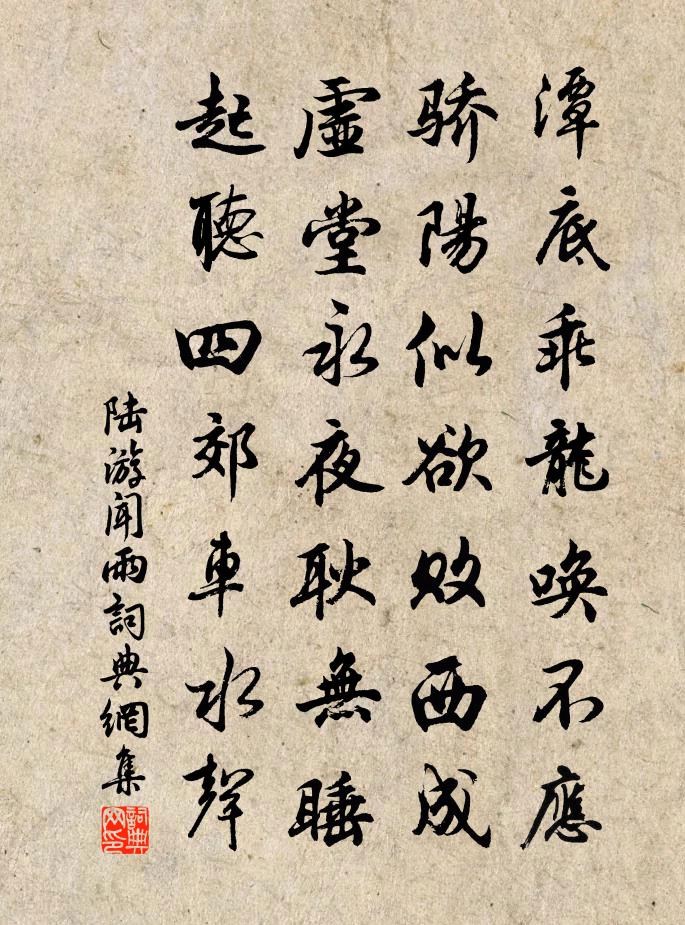 潭底乖龍喚不應
驕陽似欲敗西成
虛堂永夜耿無睡
起聽四郊車水聲
陸游聞雨詞典網集
詞典
网印